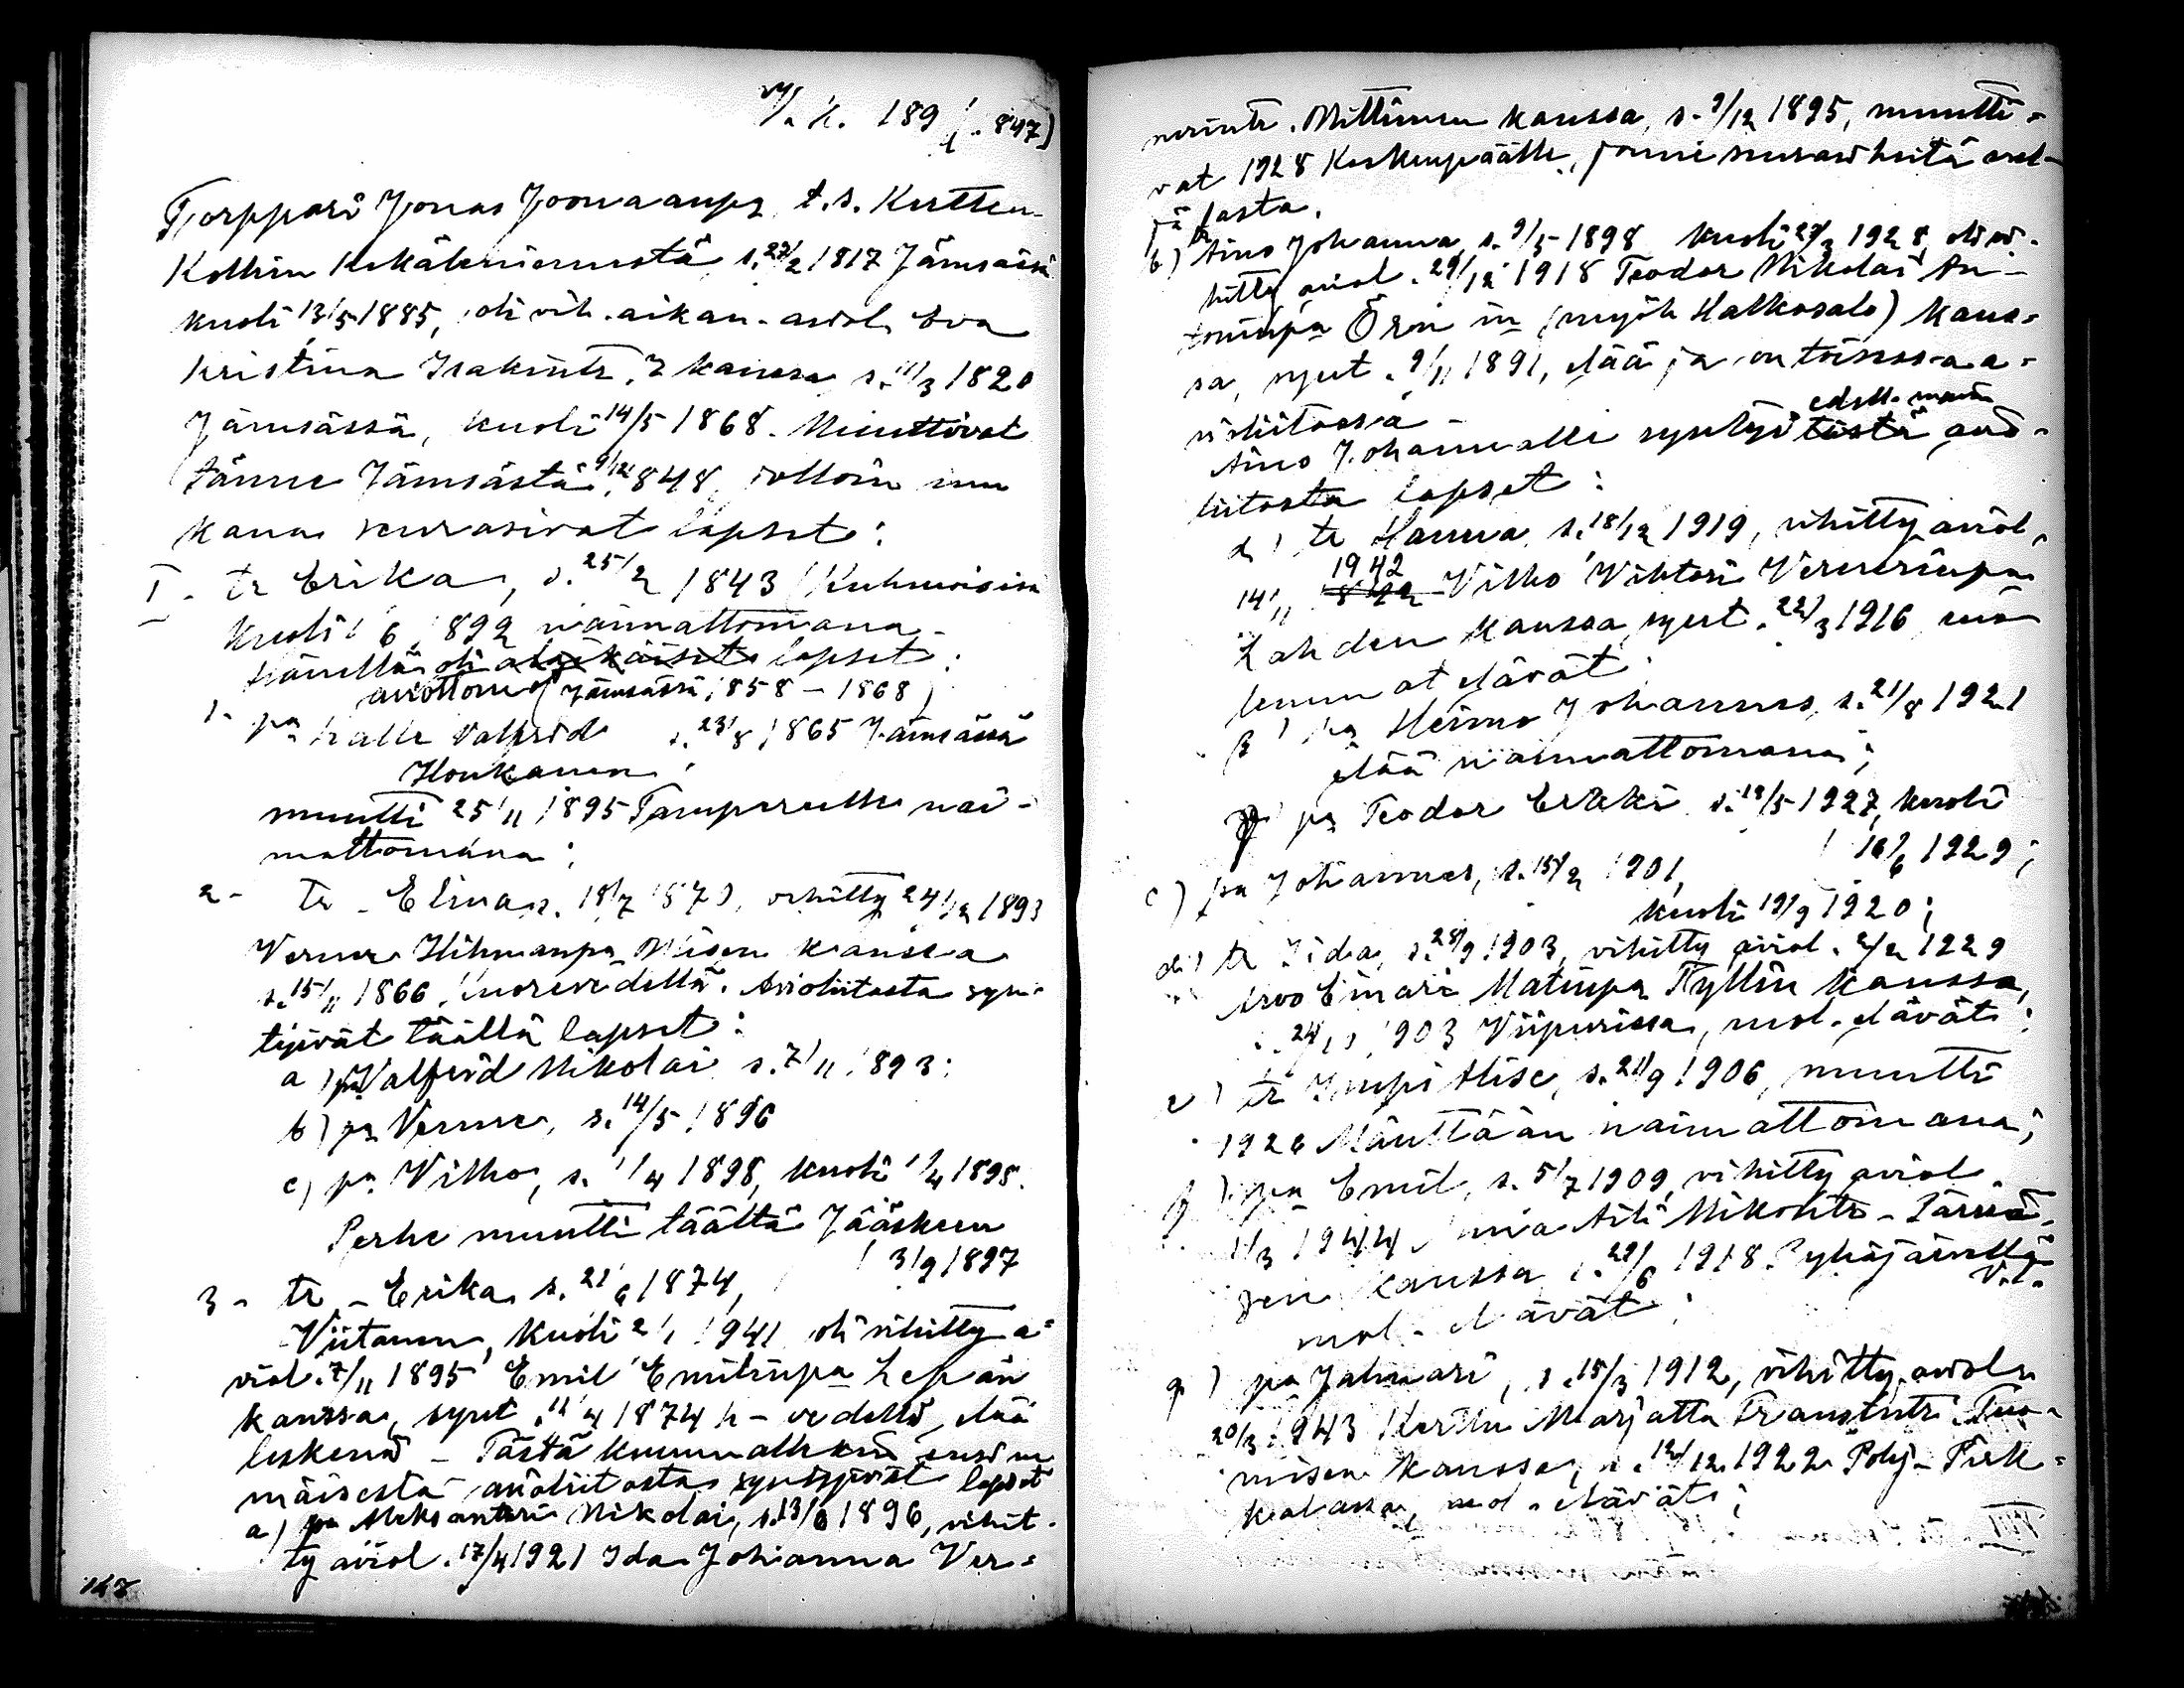 v/. k. 189 (. 847)
Torppari Jonas Joonaanpa, t. s. Kutten-
Kollin Kekäleniemestä, s. 27/2 1817 Jämsässä
kuoli 13/5 1885, oli vih. aikan. aviol. Eva
Kristina Isakintr. kanssa s. 11/3 1820
Jämsässä, kuoli 14/5 1868. Muuttivat
tänne Jämsästä 9/12 1848, jolloin mu
kana seurasivat lapset:
I - tr Erika, s. 25/2 1843 (Kuhmoisissa
kuoli / 6 1892 naimattomana -
hänellä oli alaikäiset lapset:
aviottomat (Jämsässä 1858 - 1868)
1 - pa Kalle Valfrid s. 23/8 1865 Jämsässä
Honkanen;
muutti 25/11 1895 Tampereelle nai-
mattomana;
2 - tr - Elina s. 18/7 1870, vihitty 24/12 1893
Verner Hihmanpa Niisen kanssa
s. 15/11 1866 Kuorevedellä. Avioliitosta syn-
tyivät täällä lapset:
a) pa Valfrid Nikolai s. 7/11 1893;
b) pa Verner, s. 14/5 1896
c) pa Vilho, s. 1/4 1898, kuoli 1/4 1898.
Perhe muutti täältä Jääskeen
3/9 1897
3 - tr - Erika s. 21/6 1874,
Viitanen, kuoli 2/1 1941 oli vihitty a-
viol. 7/11 1895 Emil Emilinpa Lepän
kanssa, synt. 11/4 1874 k-vedellä, elää
leskenä - Tästä kummallekin ensim
mäisestä avioliitosta syntyivät lapset
a) pa Aleksanteri Nikolai, s. 13/6 1896, vihit-
ty aviol. 17/4 1921 Ida Johanna Ver-
147
nerintr. Nittimen kanssa, s. 9/12 1895, muutti-
vat 1928 Keskenpäälle, jonne seurasi heitä
lasta.
b) tr Aino Johanna, s. 9/5 1898 kuoli 27/3 1928, oli vi-
hitty aviol. 29/12 1918 Teodor Nikolai An-
toninpa Örn'in (myöh Halkosalo) kans-
sa, synt. 9/11 1891, elää ja on toisessa a-
violiitossa -
edell. main
Aino Johannalle syntyi tästä avio-
liitosta lapset:
α) tr Hanna, s. 18/12 1919, vihitty aviol.
1942
14/11 Vilho Vihtori Vernerinpa
Lahden kanssa, synt. 22/3 1916, mo
lemmat elävät;
β) pa Heimo Johannes, s. 21/8 1921
elää naimattomana;
γ) pa Teodor Erkki s. 18/5 1927, kuoli
16/6 1929;
c) pa Johannes, s. 15/2 1901,
kuoli 19/9 1920;
d) tr Iida, s. 28/9 1903, vihitty aviol. 2/2 1929
Arvo Einari Matinpa Kyllin kanssa,
s. 24/ 1903 Viipurissa, mol. elävät;
e) tr Impi Alise, s. 21/9 1906, muutti
1926 Mänttään naimattomana;
f) pa Emil, s. 5/7 1909, vihitty aviol.
1/3 1944 Aili Nikolitr - Järvi-
sen kanssa s. 29/6 1918 Pyhäjärvellä
V.l.
mol. elävät;
g) pa Jalmari, s. 15/3 1912, vihitty aviol.
20/3 1943 Kerttu Marjatta Franstntr Tuo-
misen kanssa, s. 12/12 1922 Pohj-Pirk-
kalassa, mol. elävät;
VIII